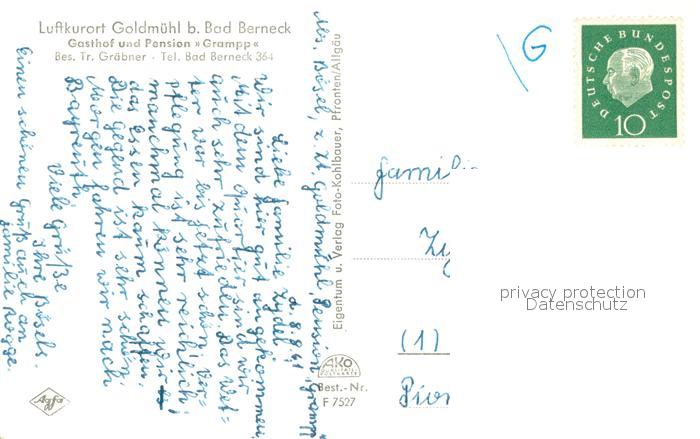 Luftkurort Goldmühl b. Bad Berneck
Gasthof und Pension »Grampp«
Bes. Tr. Gräbner · Tel. Bad Berneck 364
Abs. Bösel, z. Zt. Goldmühl, Pension „Grampp"
d. 8.8.61
Liebe Familie Zydel!
Wir sind hier gut angekommen.
Mit dem Quartier sind wir
auch sehr zufrieden. Das Wet-
ter war bis jetzt schön. Ver-
pflegung ist sehr reichlich,
manchmal können wir
das Essen kaum schaffen.
Die Gegend ist sehr schön.
Morgen fahren wir nach
Bayreuth.
Viele Grüße
Ihre Bösels.
Einen schönen Gruß auch an
Familie Rogge
Eigentum u. Verlag Foto-Kohlbauer, Pfronten/Allgäu
AKO
Best.-Nr.
F 7527
Agfa
G
DEUTSCHE BUNDESPOST
10
Famil
Zy
(1)
Pion
privacy protection
Datenschutz